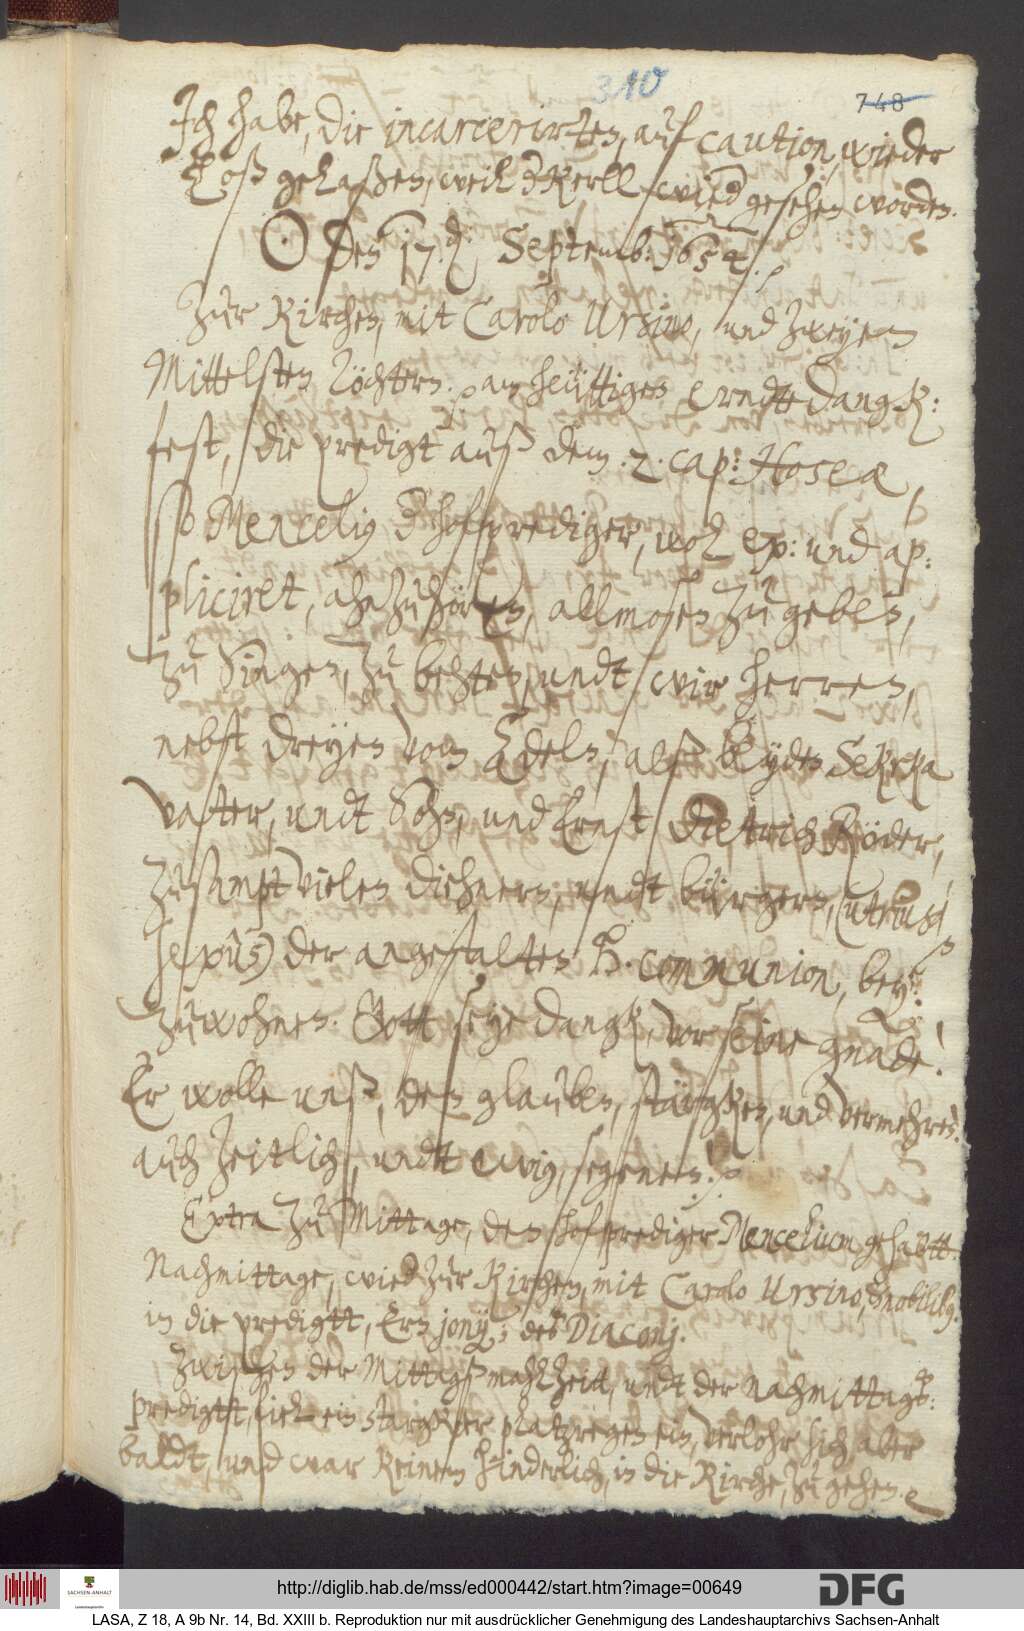 310
748
Ich habe, die incarcerirten, auf caution, wieder
Loß gelaßen, weil d Kerll wied gesehen worden.
☉ den 17. d. Septemb: 1654.
Zur Kirchen, mit Carolo Ursino, und zweyen
Mittelsten Töchtern. an heüttigen Erndte Dangk:
fest, die predigt auß dem .2. cap: Hoseæ,
so Mencelius d hofprediger, wol ex: und ap:
pliciret, ahnzuhören, allmosen zu geben,
zu Singen, zu behten, undt wir herren,
nebst dreyen vom Edeln, alß beyden Sekreka
vatter, undt Sohn, und Ernst Dietrich Röder,
zusampt vielen diehnern, undt bürgern, (utriusq
sexus) der angestalten H. communion, bey:
zuwohnen. Gott seye dangk, vor seine gnade!
Er wolle unß, den glauben, stärgken, und vermehren.
auch zeitlich, undt ewig, segenen!
Extra zu Mittage, den hofprediger Mencelium gehabtt.
Nachmittage, wied zur Kirchen, mit Carolo Ursino, & nobilibus.
in die predigtt, Ern Jonij, des Diaconj.
Zwischen der Mittagßmahlzeitt, undt der nachmittags:
predigtt, fiel ein starcker platzregen ein, verlohr sich aber
baldt, und war keinem hinderlich, in die Kirche, zu gehen.
http://diglib.hab.de/mss/ed000442/start.htm?image=00649
SACHSEN-ANHALT
DFG
LASA, Z 18, A 9b Nr. 14, Bd. XXIII b. Reproduktion nur mit ausdrücklicher Genehmigung des Landeshauptarchivs Sachsen-Anhalt